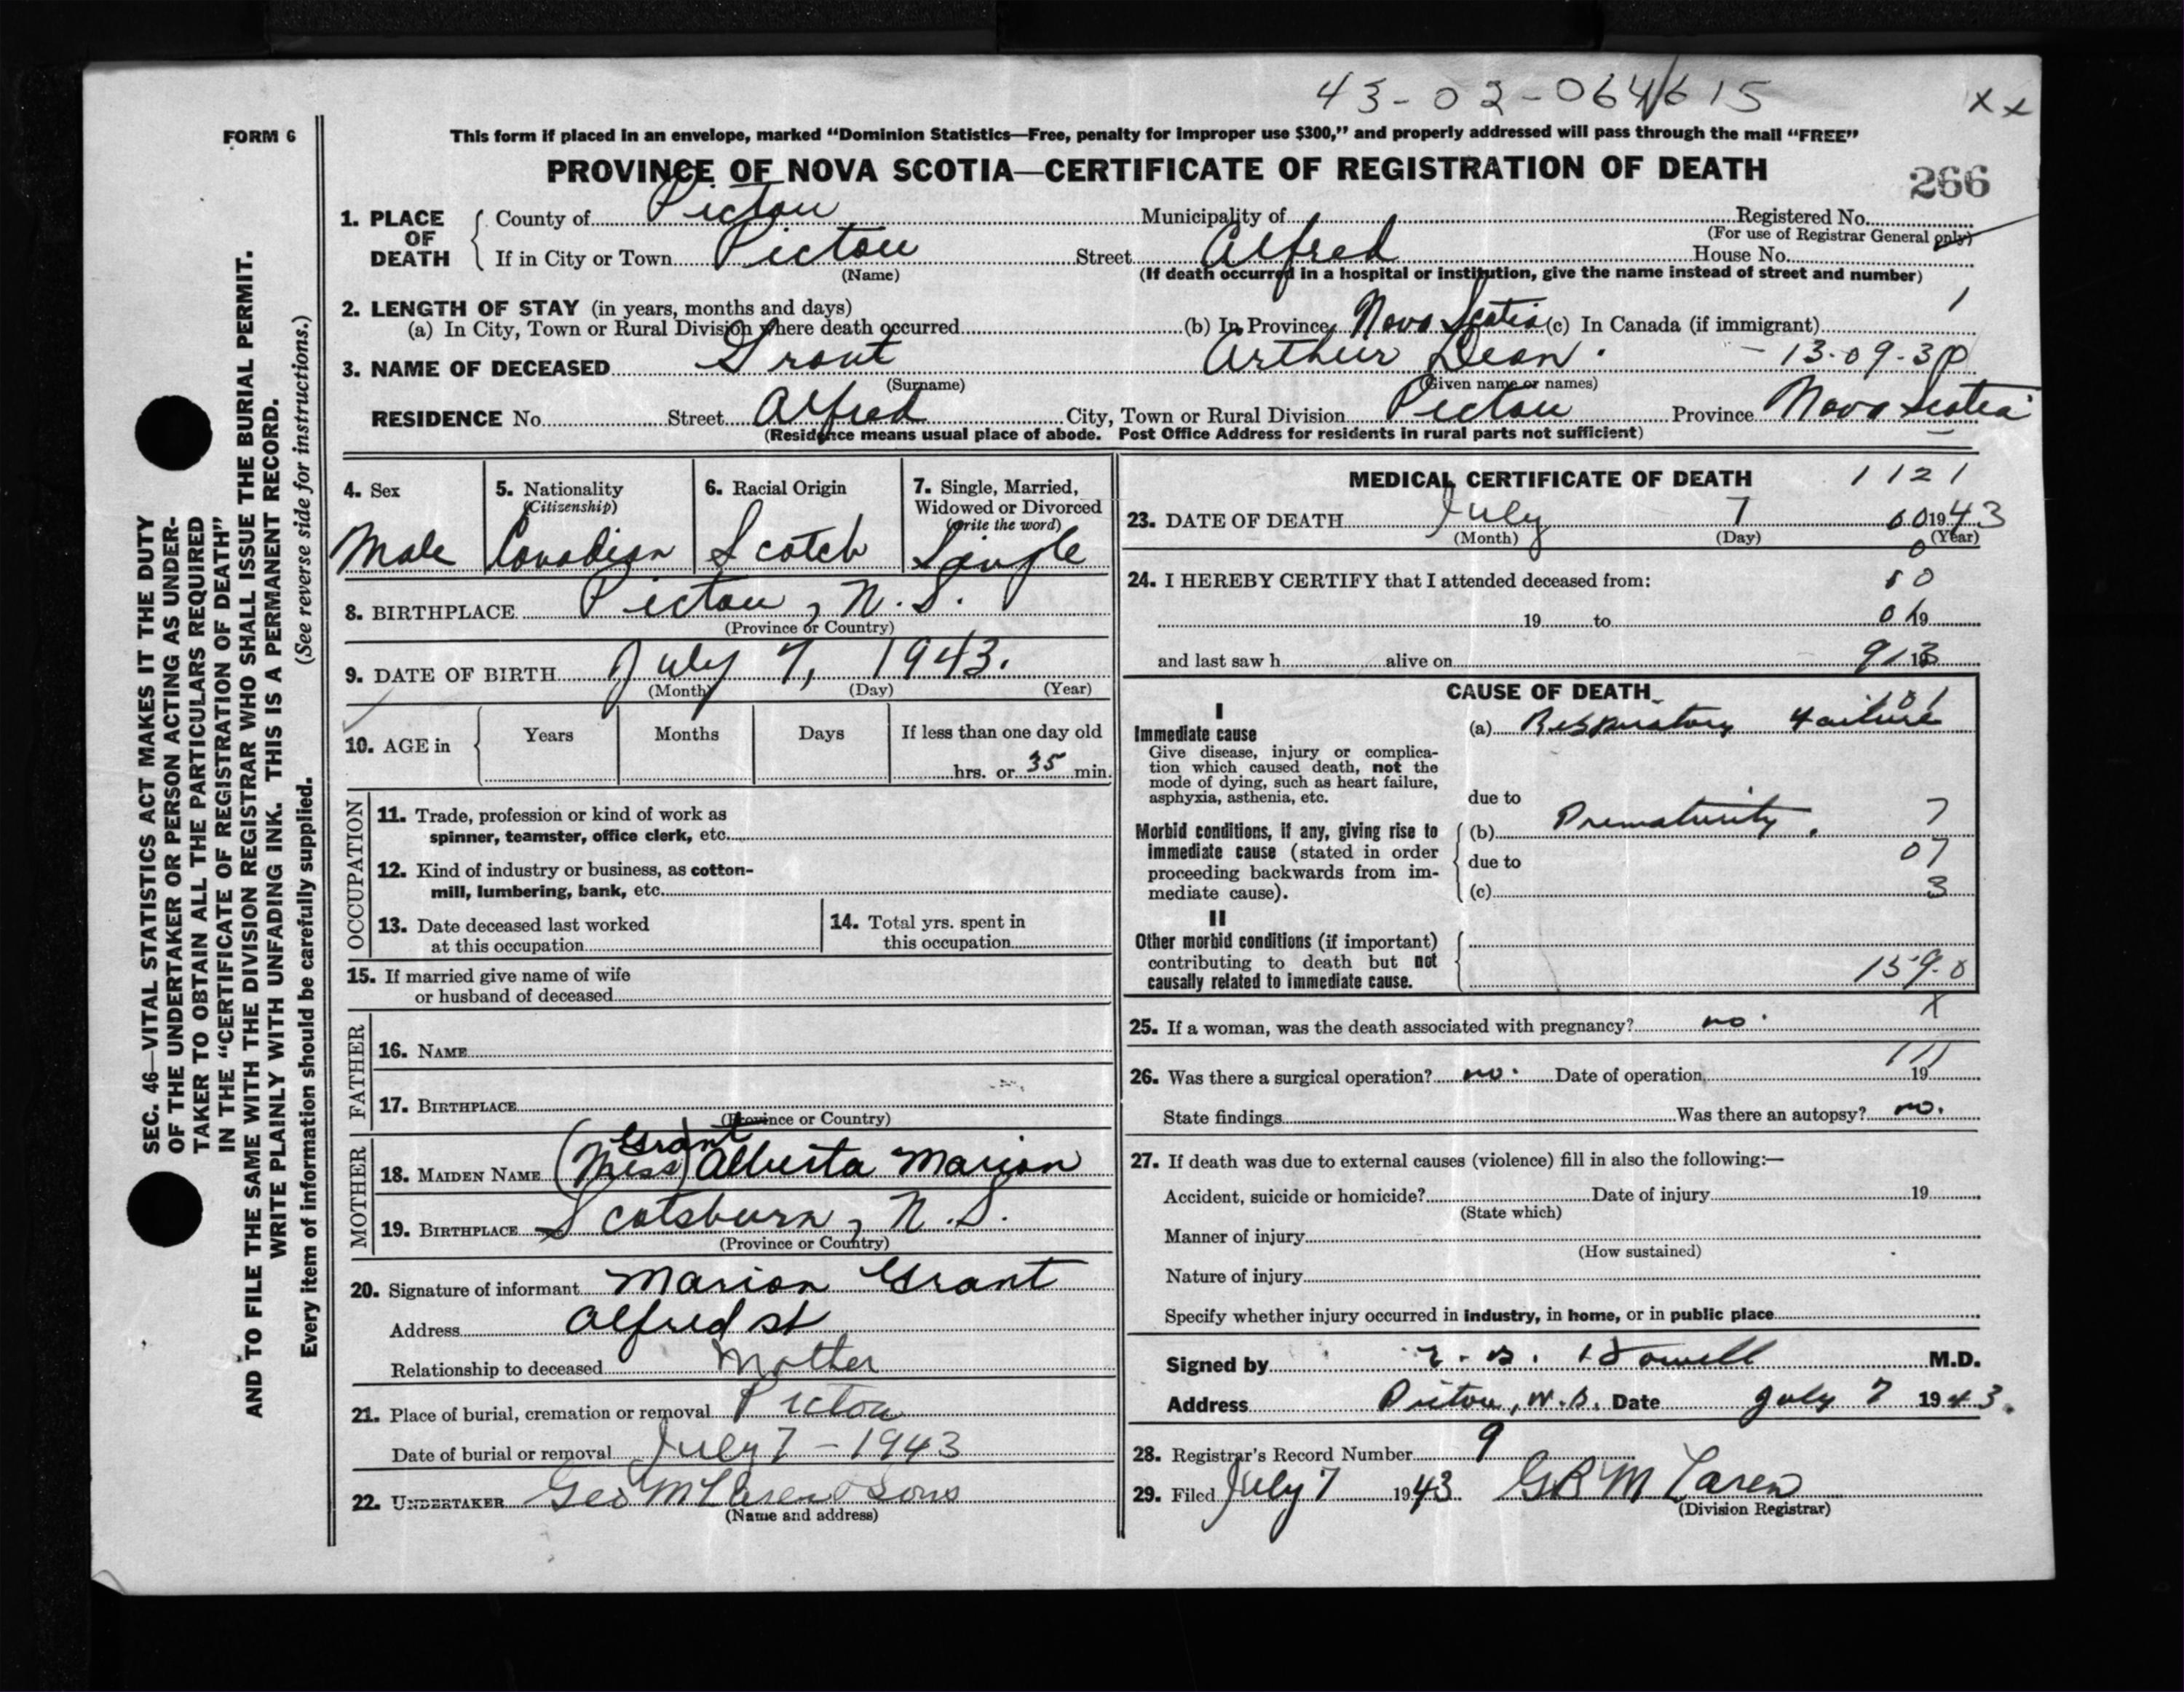 43-02-064615
x x
FORM 6
This form if placed in an envelope, marked “Dominion Statistics—Free, penalty for improper use $300,” and properly addressed will pass through the mail “FREE”
PROVINCE OF NOVA SCOTIA—CERTIFICATE OF REGISTRATION OF DEATH
266
1. PLACE OF DEATH
County of Pictou Municipality of Registered No.
(For use of Registrar General only)
If in City or Town Pictou Street Alfred House No.
(Name) (If death occurred in a hospital or institution, give the name instead of street and number)
2. LENGTH OF STAY (in years, months and days) 1
(a) In City, Town or Rural Division where death occurred (b) In Province Nova Scotia (c) In Canada (if immigrant)
3. NAME OF DECEASED Grant Arthur Dean - 13-09-30
(Surname) (Given name or names)
RESIDENCE No. Street Alfred City, Town or Rural Division Pictou Province Nova Scotia
(Residence means usual place of abode. Post Office Address for residents in rural parts not sufficient)
4. Sex
Male
5. Nationality
(Citizenship)
Canadian
6. Racial Origin
Scotch
7. Single, Married,
Widowed or Divorced
(write the word)
Single
8. BIRTHPLACE Pictou, N.S.
(Province or Country)
9. DATE OF BIRTH July 7, 1943.
(Month) (Day) (Year)
10. AGE in Years Months Days If less than one day old
hrs. or 35 min.
OCCUPATION
11. Trade, profession or kind of work as
spinner, teamster, office clerk, etc.
12. Kind of industry or business, as cotton-
mill, lumbering, bank, etc.
13. Date deceased last worked
at this occupation
14. Total yrs. spent in
this occupation
15. If married give name of wife
or husband of deceased
FATHER
16. NAME
17. BIRTHPLACE
(Province or Country)
MOTHER
Grant
18. MAIDEN NAME (Miss) Alberta Marion
19. BIRTHPLACE Scotsburn, N.S.
(Province or Country)
20. Signature of informant Marion Grant
Address Alfred st
Relationship to deceased Mother
21. Place of burial, cremation or removal Pictou
Date of burial or removal July 7 - 1943
22. UNDERTAKER Geo McLaren & Sons
(Name and address)
MEDICAL CERTIFICATE OF DEATH 1121
23. DATE OF DEATH July 7 1943
(Month) (Day) (Year)
24. I HEREBY CERTIFY that I attended deceased from:
19 to 19
and last saw h alive on 19
CAUSE OF DEATH
I
Immediate cause
Give disease, injury or complica-
tion which caused death, not the
mode of dying, such as heart failure,
asphyxia, asthenia, etc.
(a) Respiratory failure
due to
Morbid conditions, if any, giving rise to
immediate cause (stated in order
proceeding backwards from im-
mediate cause).
(b) Prematurity. 7
due to 07
(c) 3
II
Other morbid conditions (if important)
contributing to death but not
causally related to immediate cause.
159.0
x
25. If a woman, was the death associated with pregnancy? no
111
26. Was there a surgical operation? no. Date of operation 19
State findings Was there an autopsy? no.
27. If death was due to external causes (violence) fill in also the following:—
Accident, suicide or homicide? Date of injury 19
(State which)
Manner of injury
(How sustained)
Nature of injury
Specify whether injury occurred in industry, in home, or in public place
Signed by Howell M.D.
Address Pictou, N.S. Date July 7 1943.
28. Registrar's Record Number 9
29. Filed July 7 1943 G R McLaren
(Division Registrar)
SEC. 46—VITAL STATISTICS ACT MAKES IT THE DUTY
OF THE UNDERTAKER OR PERSON ACTING AS UNDER-
TAKER TO OBTAIN ALL THE PARTICULARS REQUIRED
IN THE “CERTIFICATE OF REGISTRATION OF DEATH”
AND TO FILE THE SAME WITH THE DIVISION REGISTRAR WHO SHALL ISSUE THE BURIAL PERMIT.
WRITE PLAINLY WITH UNFADING INK. THIS IS A PERMANENT RECORD.
Every item of information should be carefully supplied. (See reverse side for instructions.)